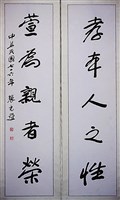 孝本人之性
萱為親者榮
中華民國七十六年